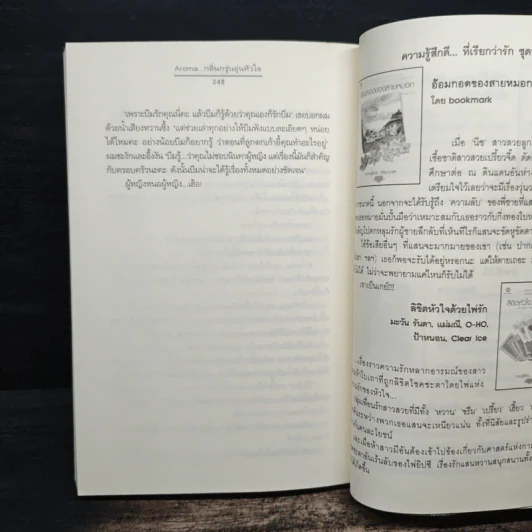 Aroma...กลิ่นกรุ่นอุ่นหัวใจ
248
"เพราะบีมรักคุณนี่คะ แล้วบีมก็รู้ด้วยว่าคุณเองก็รักบีม" เธอบอกผม
ด้วยน้ำเสียงหวานซึ้ง "แต่ช่วยเล่าทุกอย่างให้บีมฟังแบบละเอียดๆ หน่อย
ได้ไหมคะ อย่างน้อยบีมก็อยากรู้ ว่าตอนที่ลูกตกเก้าอี้คุณทำอะไรอยู่"
ผมชะงักและอึ้งงัน "บีมรู้...ว่าคุณไม่ชอบนินทาผู้หญิง แต่เรื่องนี้มันก็สำคัญ
กับครอบครัวนะคะ ดังนั้นบีมน่าจะได้รู้เรื่องทั้งหมดอย่างชัดเจน"
ผู้หญิงหนอผู้หญิง...เฮ้อ!
ความรู้สึกดี... ที่เรียกว่ารัก ชุด
อ้อมกอดของสายหมอก
โดย bookmark
เมื่อ 'นีช' สาวสวยลูก
เชื้อชาติสาวสวยเปรี้ยวจี๊ด ตัด
ศึกษาต่อ ณ ดินแดนอันห่าง
เตรียมใจไว้เลยว่าจะมีเรื่องวุ่น
นอกจากจะได้รับรู้ถึง 'ความลับ' ของพี่ชายที่แสน
ให้ข้อเสียอื่นๆ ที่แสนจะมากมายของเขา (เช่น ปาก
เธอก็พอจะรับได้อยู่หรอกนะ แต่ให้ตายเถอะ
ไม่ว่าจะพยายามแค่ไหนก็รับไม่ได้
เขาเป็นเกย์!!!
ลิขิตหัวใจด้วยไพ่รัก
มะวัน รันดา, แม่มณี, O-HO,
ป้าหนอน, Clear Ice
...เรื่องราวความรักหลากอารมณ์ของสาว
ที่ถูกลิขิตโชคชะตาโดยไพ่แห่ง
รักของหัวใจ...
กลุ่มเพื่อนรักสาวสวยที่มีทั้ง 'หวาน' 'ขรึม' 'เปรี้ยว' 'เฮี้ยว'
ระหว่างพวกเธอแสนจะเหนียวแน่น ทั้งที่นิสัยและรูปร่าง
และเมื่อห้าสาวมีอันต้องเข้าไปข้องเกี่ยวกับศาสตร์แห่งการ
อันเร้นลับของไพ่ยิปซี เรื่องรักแสนหวานสนุกสนานทั้ง
เกิดขึ้น